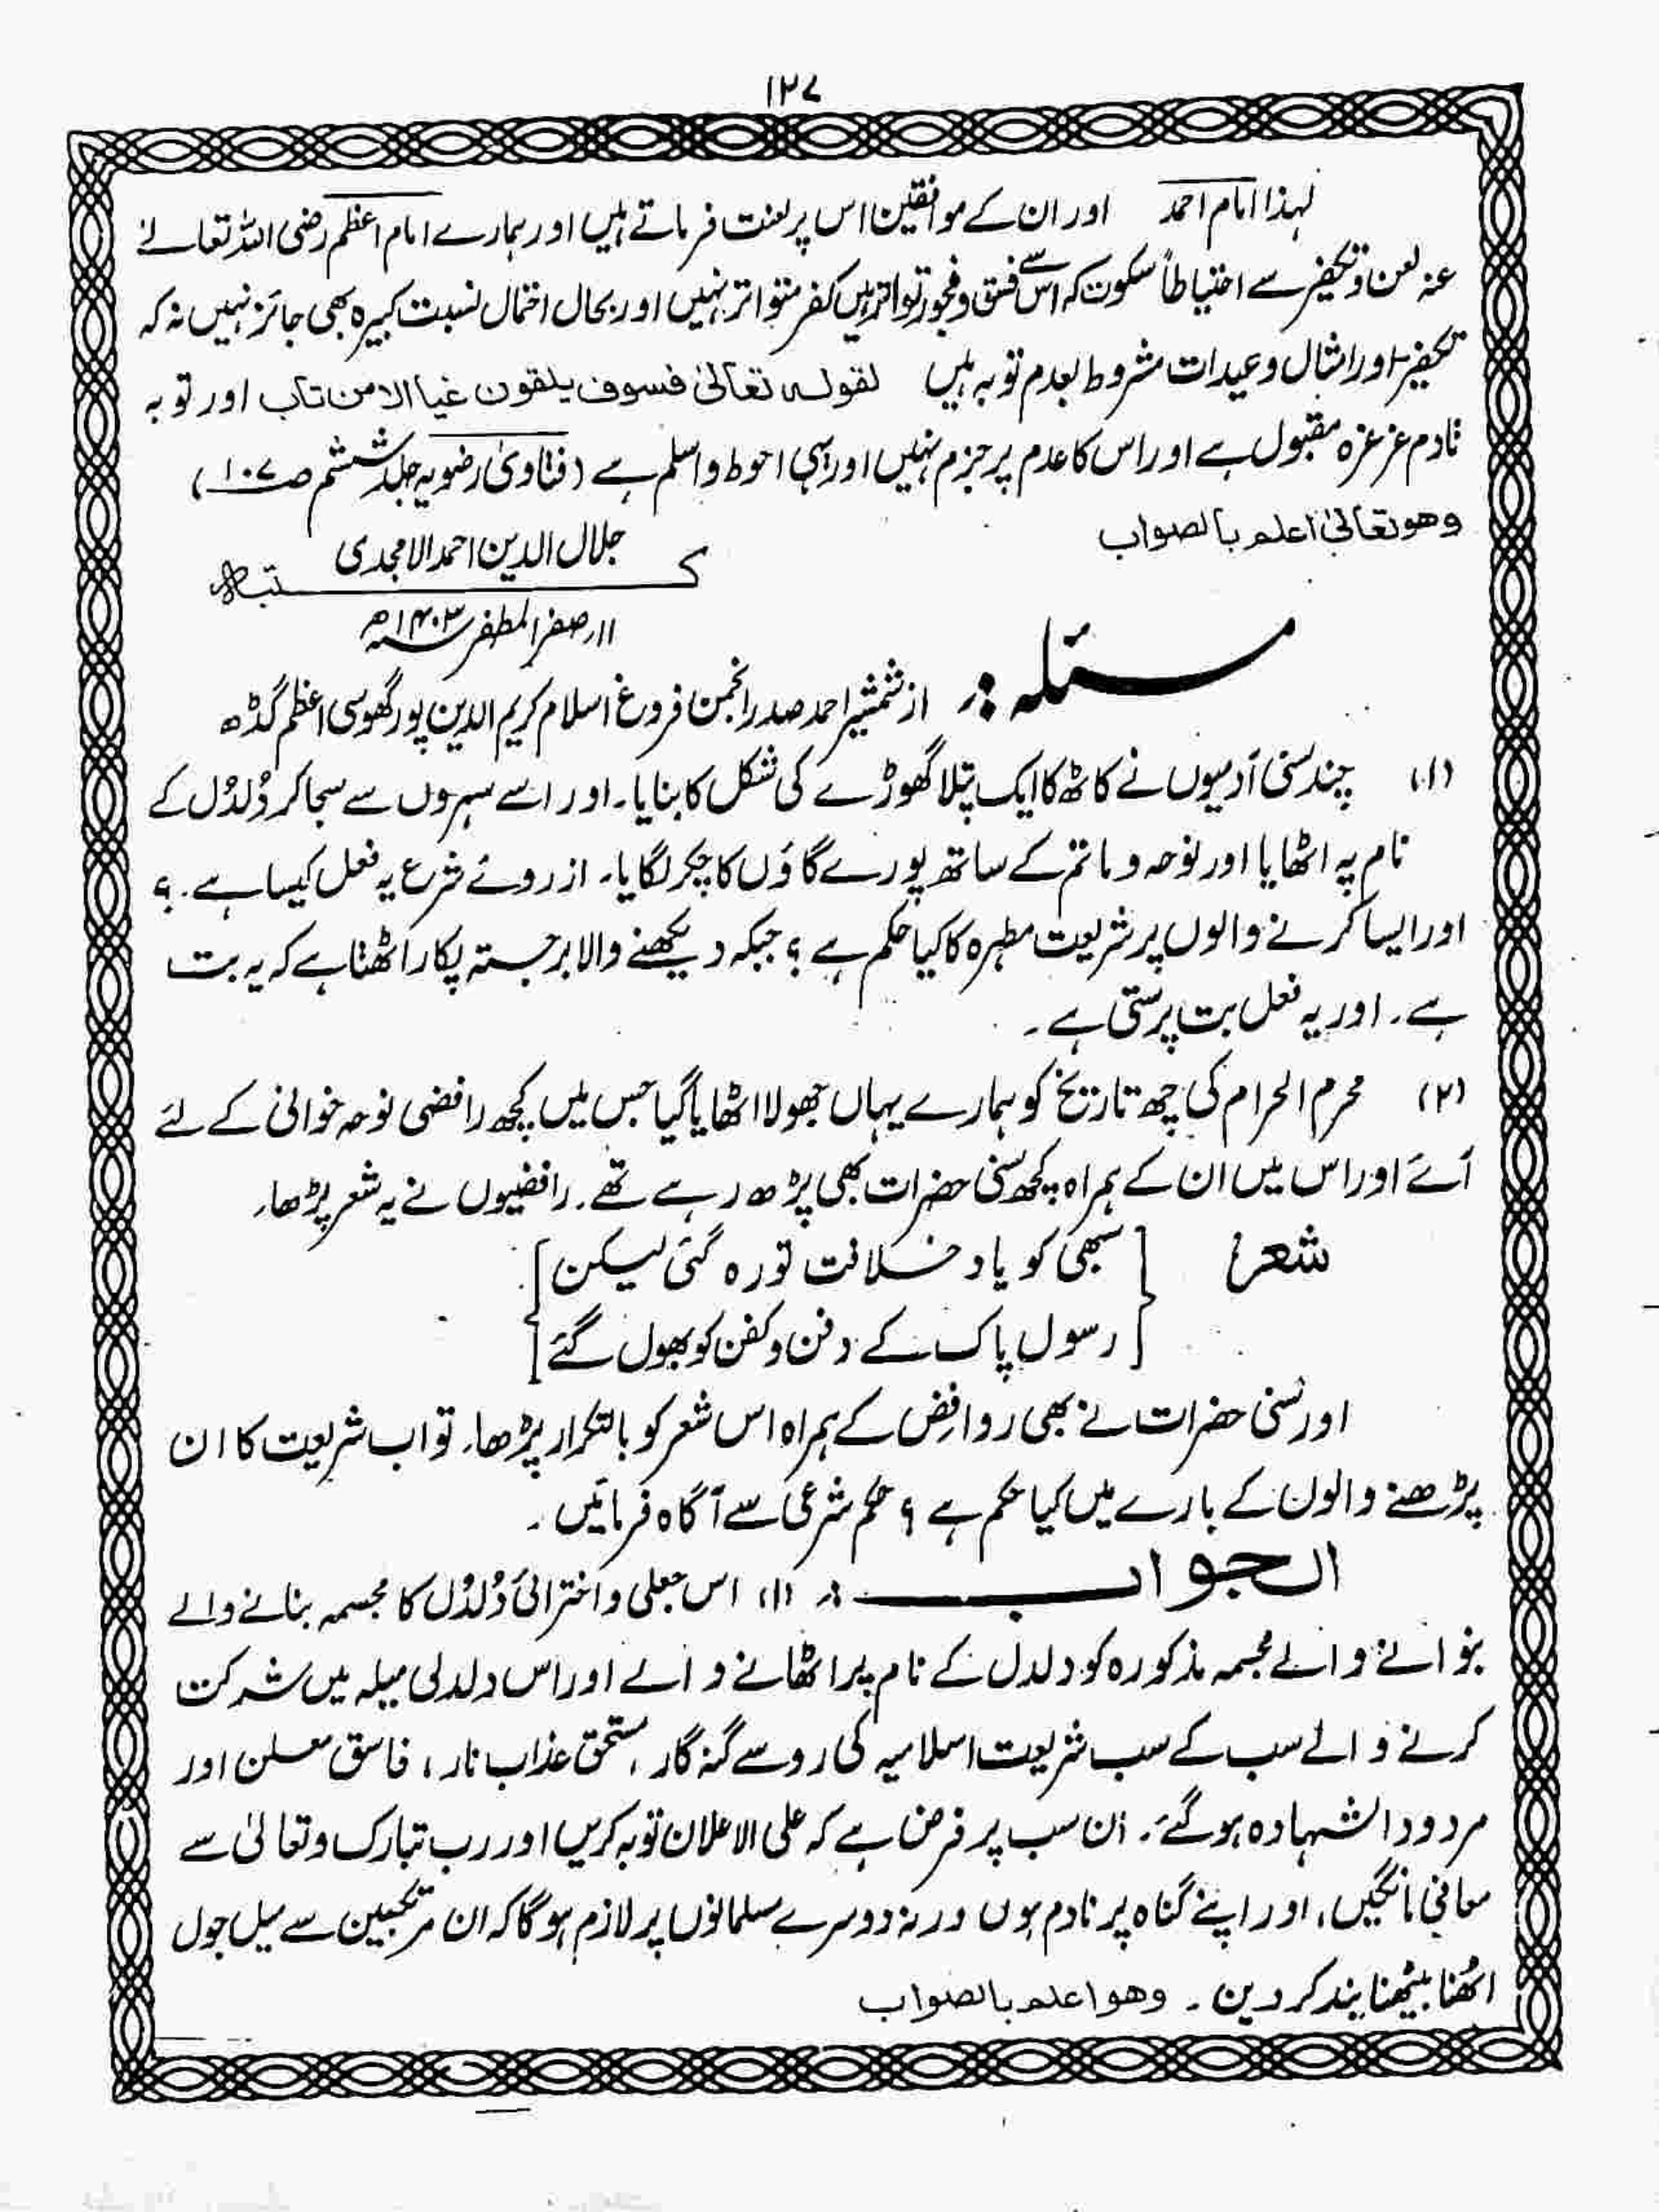 ۱۲۷
لہذا امام احمد اور ان کے موافقین اس پر لعنت فرماتے ہیں اور ہمارے امام اعظم رضی اللہ تعالےٰ
عنہ لعن و تکفیر سے احتیاطاً سکوت کہ اس سے فسق و فجور تواتر ہیں کفر متواتر نہیں اور بحال احتمال نسبت کبیرہ بھی جائز نہیں نہ کہ
تکفیر اور امثال وعیدات مشروط بعدم توبہ ہیں لقولہ تعالیٰ فسوف یلقون غیا الا من تاب اور توبہ
تادم غرغرہ مقبول ہے اور اس کا عدم پر جزم نہیں اور یہی احوط و اسلم ہے (فتاویٰ رضویہ جلد ششم ص ۱۰۷)
وھو تعالیٰ اعلم بالصواب
جلال الدین احمد الامجدی
کتبہ
۱۱ر صفر المظفر سنہ ۱۴۰۳ھ
مسئلہ :ر از شمشیر احمد صدر انجمن فروغ اسلام کریم الدین پور گھوسی اعظم گڈھ
(۱) چند سنی آدمیوں نے کاٹھ کا ایک پتلا گھوڑے کی شکل کا بنایا۔ اور اسے سہروں سے سجا کر دُلدُل کے
نام پہ اٹھایا اور نوحہ و ماتم کے ساتھ پورے گاؤں کا چکر لگایا۔ ازروئے شرع یہ فعل کیسا ہے۔ ؟
اور ایسا کرنے والوں پر شریعت مطہرہ کا کیا حکم ہے ؟ جبکہ دیکھنے والا برجستہ پکار اٹھتا ہے کہ یہ بت
ہے۔ اور یہ فعل بت پرستی ہے۔
(۲) محرم الحرام کی چھ تاریخ کو ہمارے یہاں جھولا اٹھایا گیا جس میں کچھ رافضی نوحہ خوانی کے لئے
آئے اور اس میں ان کے ہمراہ کچھ سنی حضرات بھی پڑھ رہے تھے۔ رافضیوں نے یہ شعر پڑھا۔
شعر { سبھی کو یاد خلافت تو رہ گئی لیکن }
{ رسول پاک کے دفن و کفن کو بھول گئے }
اور سنی حضرات نے بھی روافض کے ہمراہ اس شعر کو بالتکرار پڑھا۔ تو اب شریعت کا ان
پڑھنے والوں کے بارے میں کیا حکم ہے ؟ حکم شرعی سے آگاہ فرمائیں۔
الجواب :ر (۱) اس جعلی و اختراعی دُلدُل کا مجسمہ بنانے والے
بنوانے والے مجسمہ مذکورہ کو دلدل کے نام پر اٹھانے والے اور اس دلدلی میلہ میں شرکت
کرنے والے سب کے سب شریعت اسلامیہ کی رو سے گنہ گار، مستحق عذاب نار، فاسق معلن اور
مردود الشہادہ ہو گئے۔ ان سب پر فرض ہے کہ علی الاعلان توبہ کریں اور رب تبارک و تعالیٰ سے
معافی مانگیں، اور اپنے گناہ پر نادم ہوں ورنہ دوسرے مسلمانوں پر لازم ہوگا کہ ان مرتکبین سے میل جول
اٹھنا بیٹھنا بند کر دیں۔ وھو اعلم بالصواب